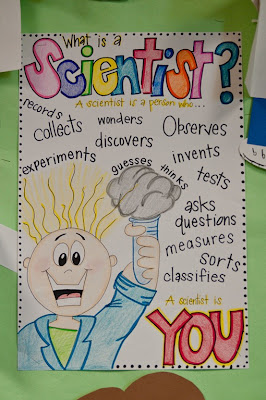 What is a
Scientist?
A scientist is a person who...
records
collects
wonders
Observes
discovers
experiments
guesses
thinks
invents
tests
asks
questions
measures
sorts
classifies
A scientist is
YOU